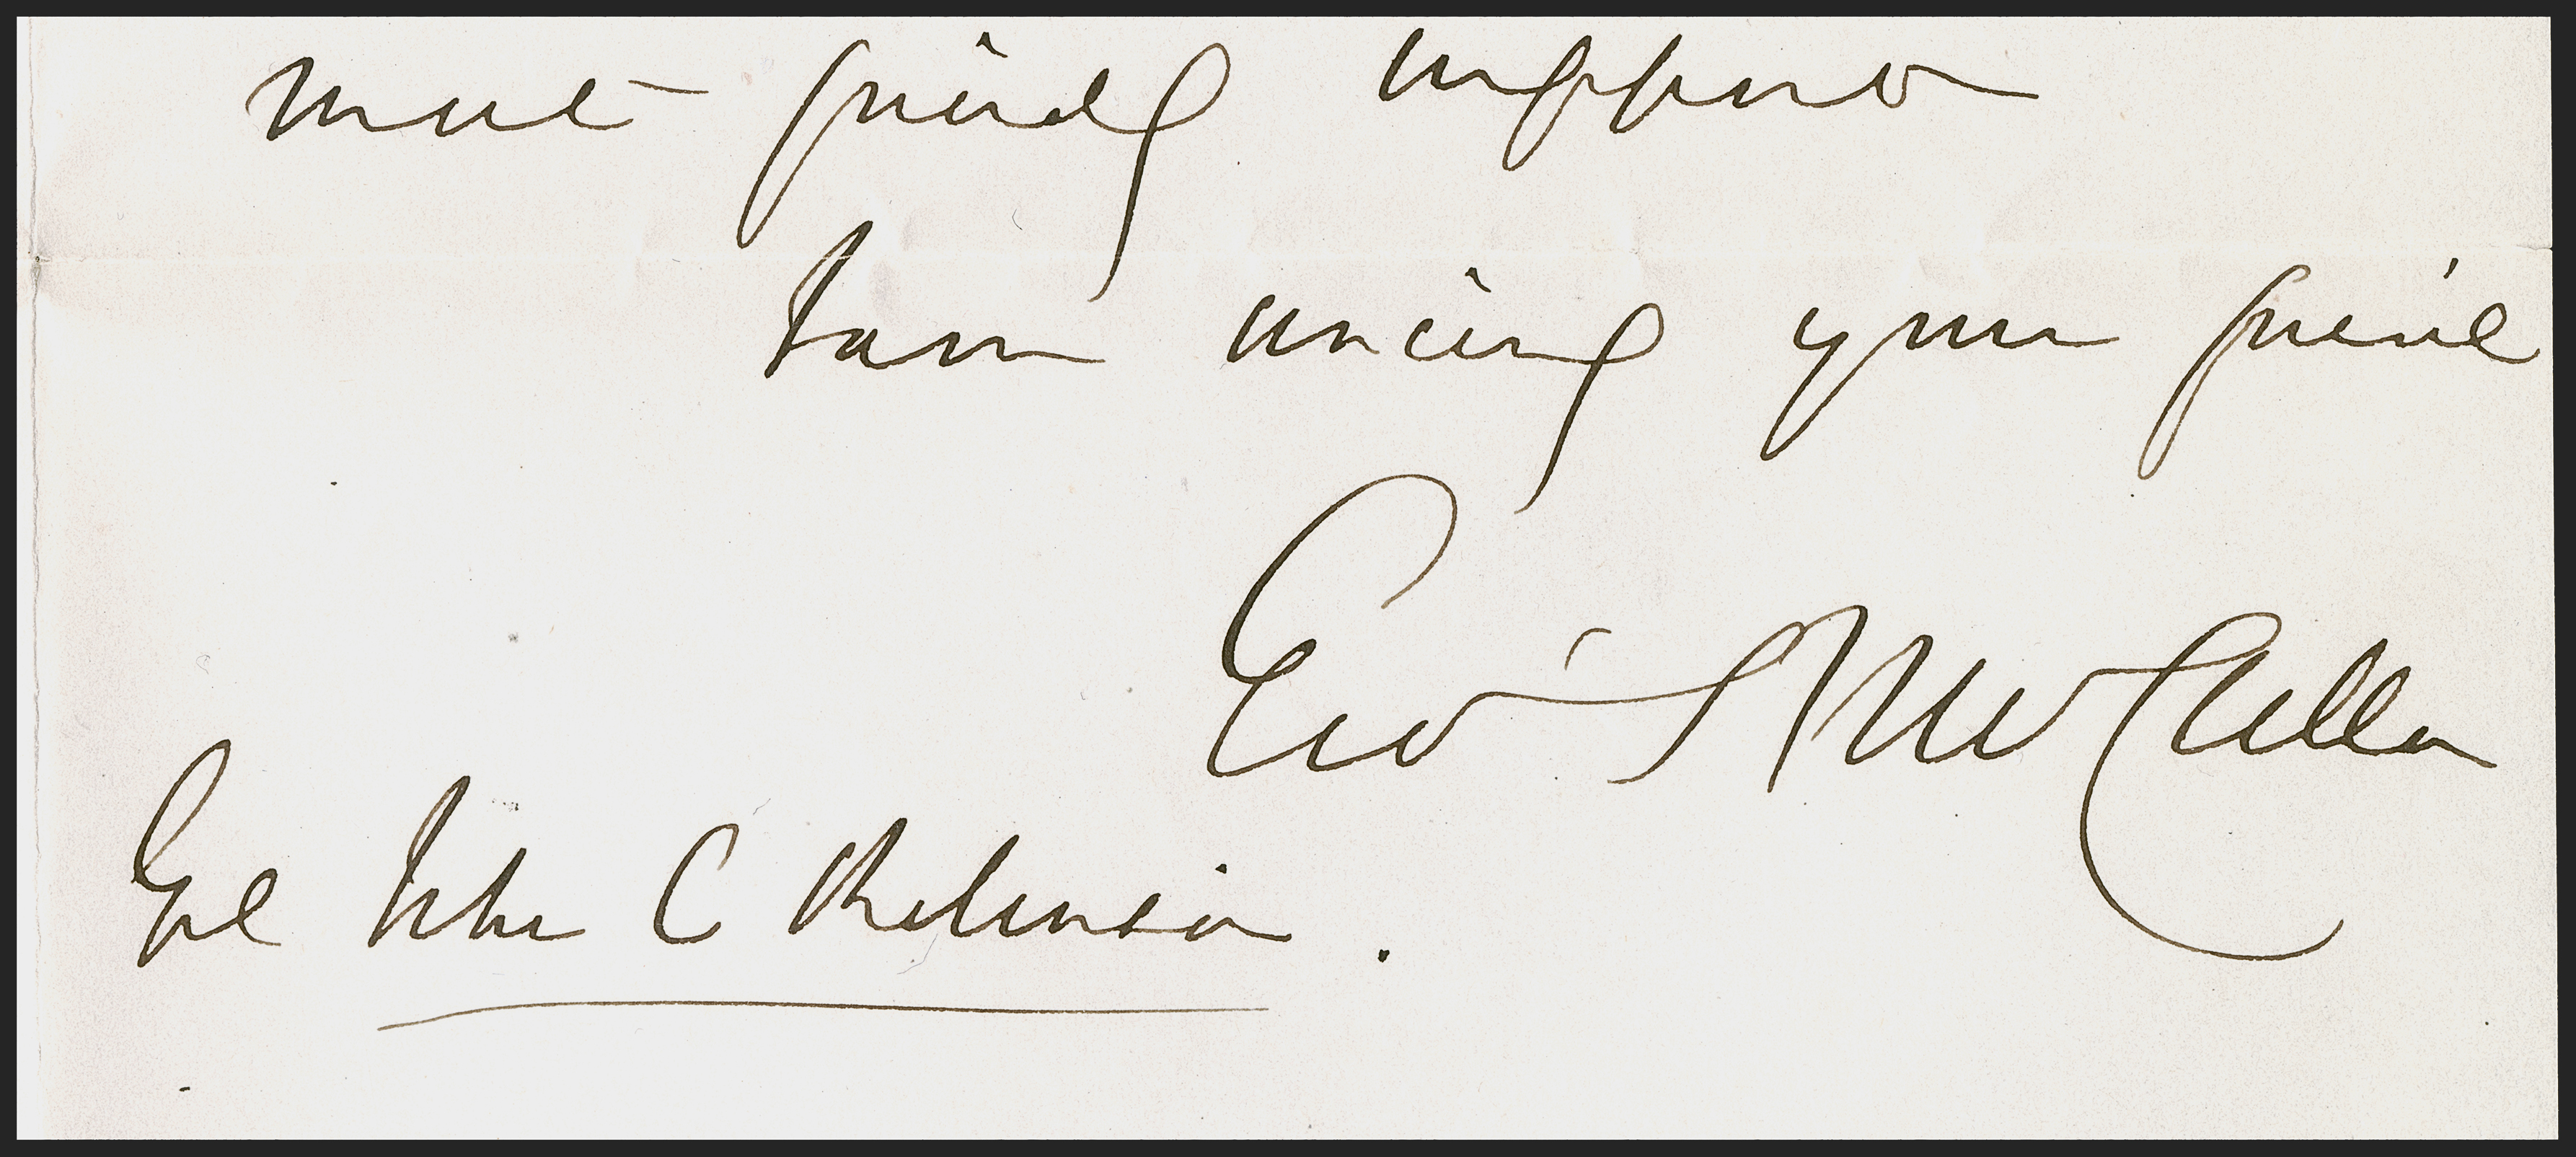 most friendly support
I am sincerely your friend
Geo B McClellan
Gnl John C Robinson.